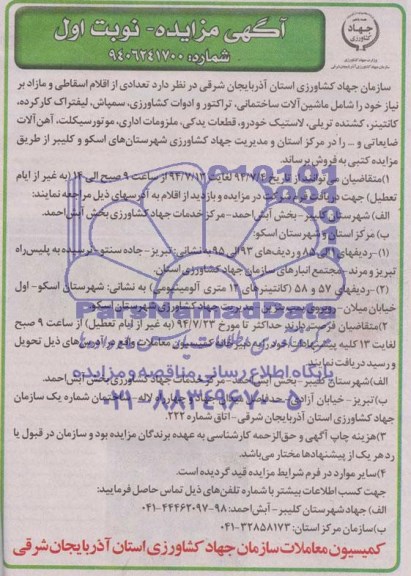 آگهی مزایده - نوبت اول
شماره: ۹۴۰۶۲۴۱۷۰۰
جهاد
کشاورزی
وزارت جهاد کشاورزی
سازمان جهاد کشاورزی آذربایجان شرقی
سازمان جهاد کشاورزی استان آذربایجان شرقی در نظر دارد تعدادی از اقلام اسقاطی و مازاد بر
نیاز خود را شامل ماشین آلات ساختمانی، تراکتور و ادوات کشاورزی، سمپاش، لیفتراک کارکرده،
کانتینر، کشنده تریلی، لاستیک خودرو، قطعات یدکی، ملزومات اداری، موتورسیکلت، آهن آلات
ضایعاتی و .. را در مرکز استان و مدیریت جهاد کشاورزی شهرستان‌های اسکو و کلیبر از طریق
مزایده کتبی به فروش برساند.
۱) متقاضیان می‌توانند از تاریخ ۹۴/۷/۴ لغایت ۹۴/۷/۱۳ از ساعت ۹ صبح الی ۱۴ (به غیر از ایام
تعطیل) جهت دریافت فرم شرکت در مزایده و بازدید از اقلام به آدرسهای ذیل مراجعه نمایند:
الف) شهرستان کلیبر - بخش آبش‌احمد - مرکز خدمات جهاد کشاورزی بخش آبش‌احمد.
ب) مرکز استان و شهرستان اسکو:
(۱)- ردیفهای ۱ الی ۸۵ و ردیف‌های ۹۳ الی ۹۵ به نشانی: تبریز - جاده سنتو - نرسیده به پلیس‌راه
تبریز و مرند - مجتمع انبارهای سازمان جهاد کشاورزی استان.
(۲)- ردیفهای ۵۷ و ۵۸ (کانتینرهای ۱۲ متری آلومینیومی) به نشانی: شهرستان اسکو - اول
خیابان میلان - روبروی پمپ بنزین - مدیریت جهاد کشاورزی شهرستان اسکو.
۲) متقاضیان فرصت دارند حداکثر تا مورخ ۹۴/۷/۲۲ (به غیر از ایام تعطیل) از ساعت ۹ صبح
لغایت ۱۳ کلیه پیشنهادات خود را به دبیرخانه کمیسیون معاملات واقع در آدرس‌های ذیل تحویل
و رسید دریافت نمایند.
الف) شهرستان کلیبر - بخش آبش‌احمد - مرکز خدمات جهاد کشاورزی بخش آبش‌احمد.
ب) تبریز - خیابان آزادی - حدفاصل میدان جهاد و چهارراه لاله - ساختمان شماره یک سازمان
جهاد کشاورزی استان آذربایجان شرقی - اتاق شماره ۲۲۲.
۳) هزینه چاپ آگهی و حق‌الزحمه کارشناسی به عهده برندگان مزایده بود و سازمان در قبول یا
رد هر یک از پیشنهادها مختار می‌باشد.
۴) سایر موارد در فرم شرایط مزایده قید گردیده است.
جهت کسب اطلاعات بیشتر با شماره تلفن‌های ذیل تماس حاصل فرمایید:
الف) جهاد شهرستان کلیبر - آبش‌احمد: ۹۸-۰۴۱-۴۴۴۶۲۰۹۷
ب) سازمان مرکز استان: ۰۴۱-۳۲۸۵۸۱۷۳
کمیسیون معاملات سازمان جهاد کشاورزی استان آذربایجان شرقی
ParsNamadData
پایگاه اطلاع رسانی مناقصه و مزایده
۰۲۱-۸۸۳۴۹۶۷۰-۵